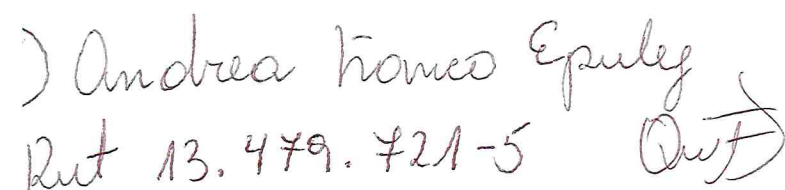 ) Andrea Epuley
Rut 13.479.721-5